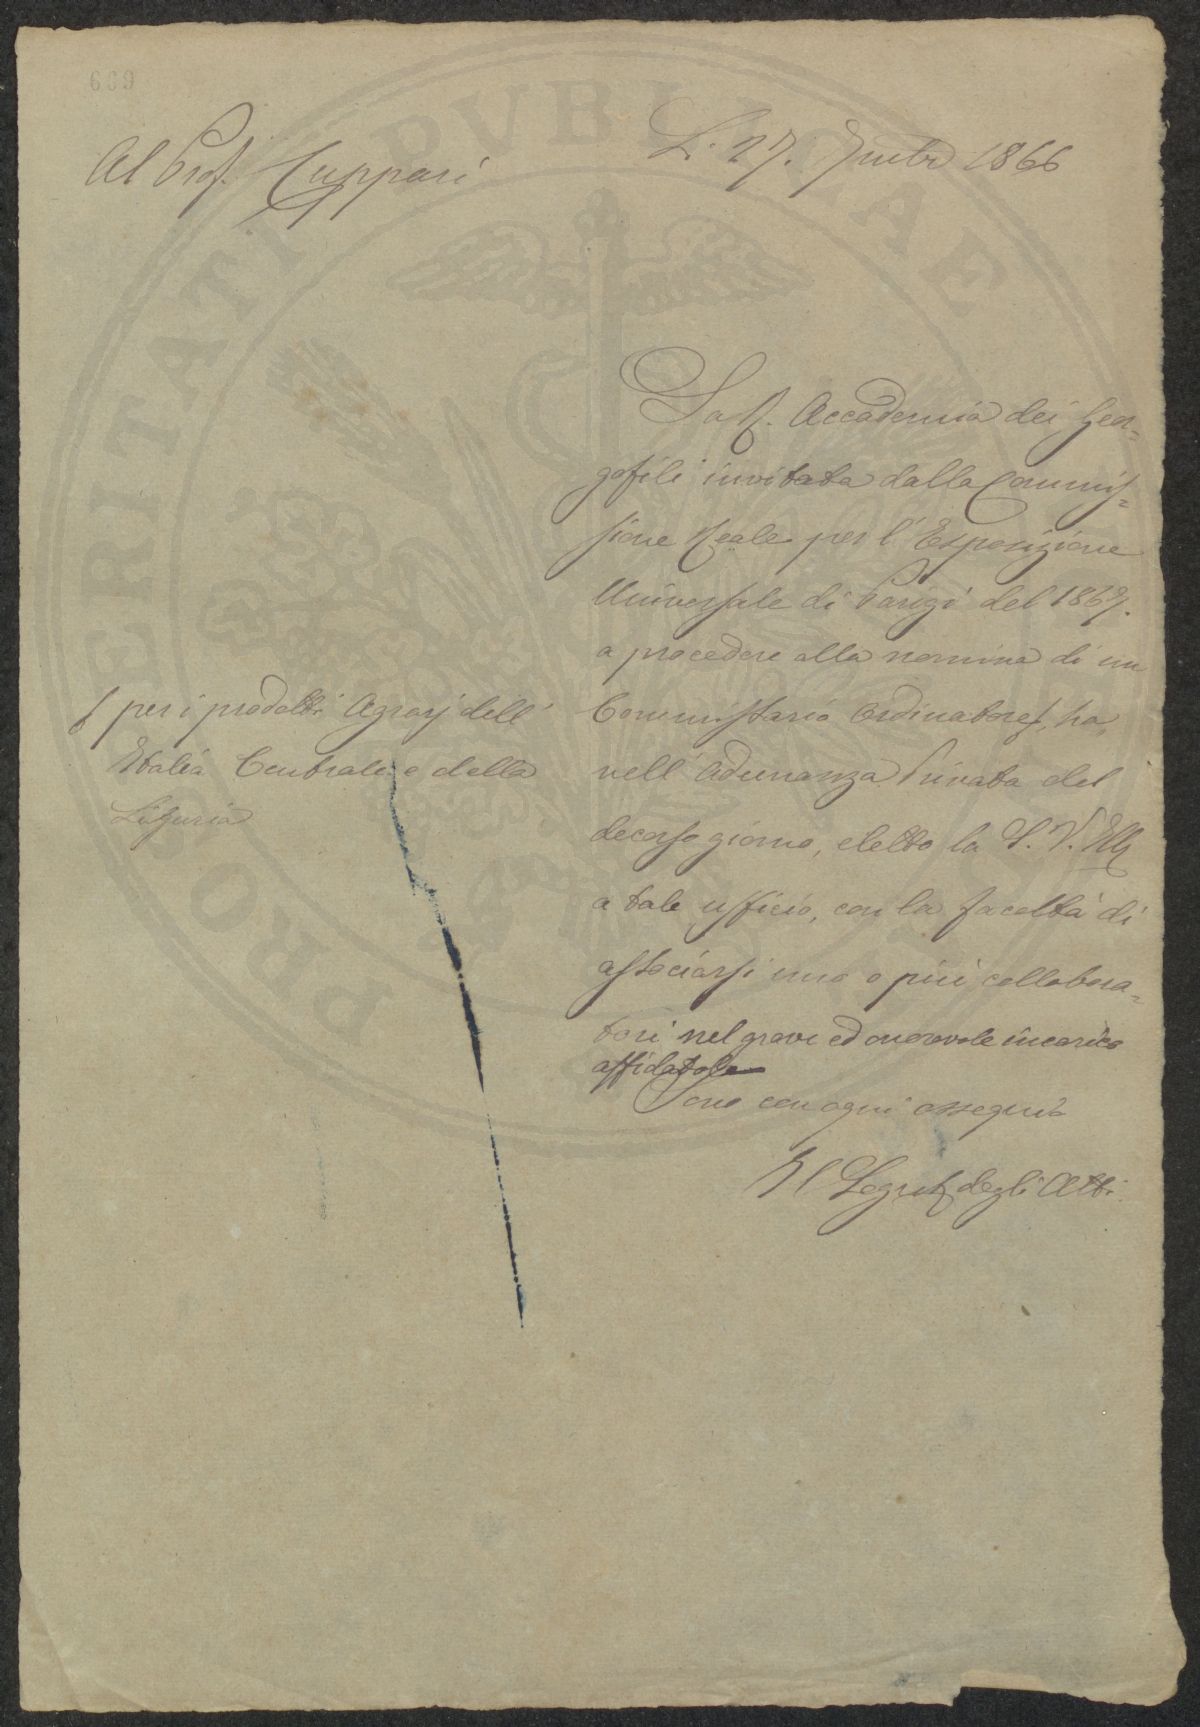 669
Al Prof. Cuppari
L. 27. 1866
La R. Accademia dei Geor-
gofili invitata dalla Commis-
sione Reale per l'Esposizione
Universale di Parigi del 1867.
a procedere alla nomina di un
Commissario Ordinatore ſ, ha,
nell'Adunanza Privata del
decorso giorno, eletto la S. V. Ill
a tale ufficio, con la facoltà di
associarsi uno o più collabora-
tori nel grave ed onorevole incarico
affidatole
Sono con ogni ossequio
Il Segret degli Atti.
ſ per i prodotti Agrarj dell'
Italia Centrale e della
Liguria
PROSPERITATI PVBLICAE